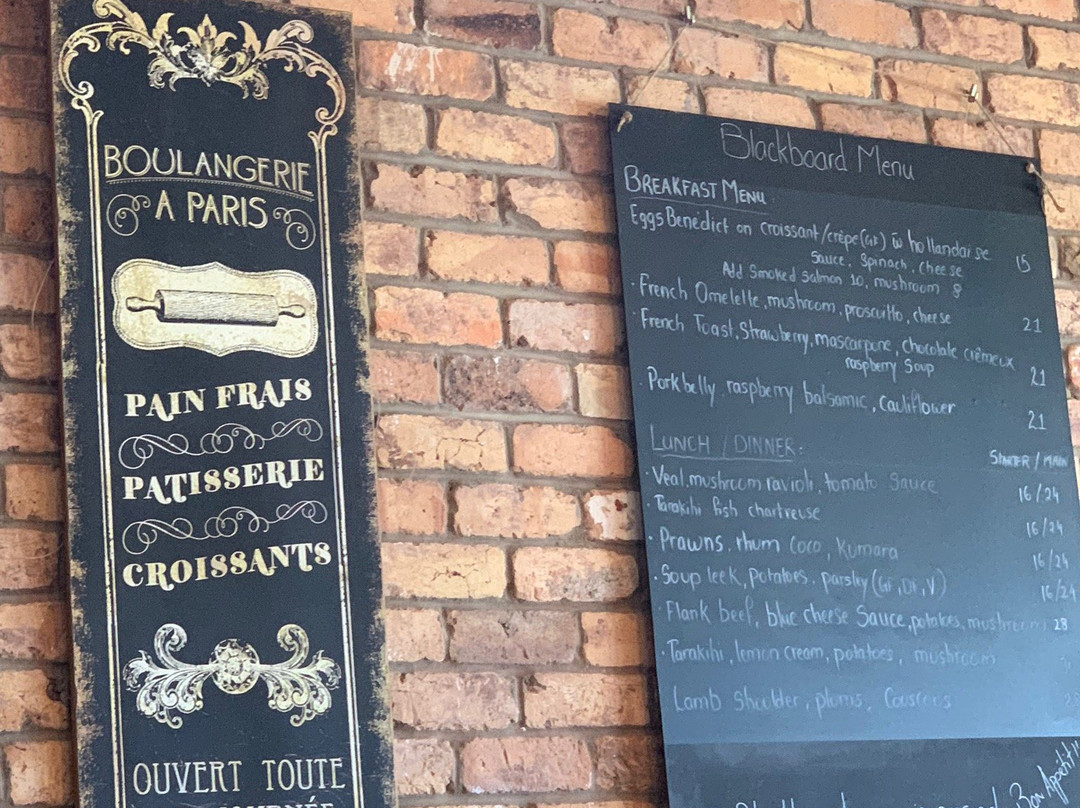 BOULANGERIE
A PARIS
PAIN FRAIS
PATISSERIE
CROISSANTS
OUVERT TOUTE
JOURNÉE
Blackboard Menu
BREAKFAST MENU:
Eggs Benedict on croissant/crêpe(GF) w hollandaise
Sauce, Spinach, cheese 15
Add Smoked Salmon 10, mushroom 8
· French Omelette, mushroom, proscuitto, cheese 21
· French Toast, Strawberry, mascarpone, chocolate crêmeux
raspberry Soup 21
· Pork belly, raspberry balsamic, cauliflower 21
LUNCH / DINNER: STARTER / MAIN
· Veal, mushroom ravioli, tomato sauce 16/24
· Tarakihi fish chartreuse 16/24
· Prawns, rhum coco, Kumara 16/24
· Soup leek, potatoes, parsley (GF, DF, V) 16/24
· Flank beef, blue cheese Sauce, potatoes, mushroom 28
· Tarakihi, lemon cream, potatoes, mushroom
Lamb Shoulder, plums, Couscous
Bon Appétit!!